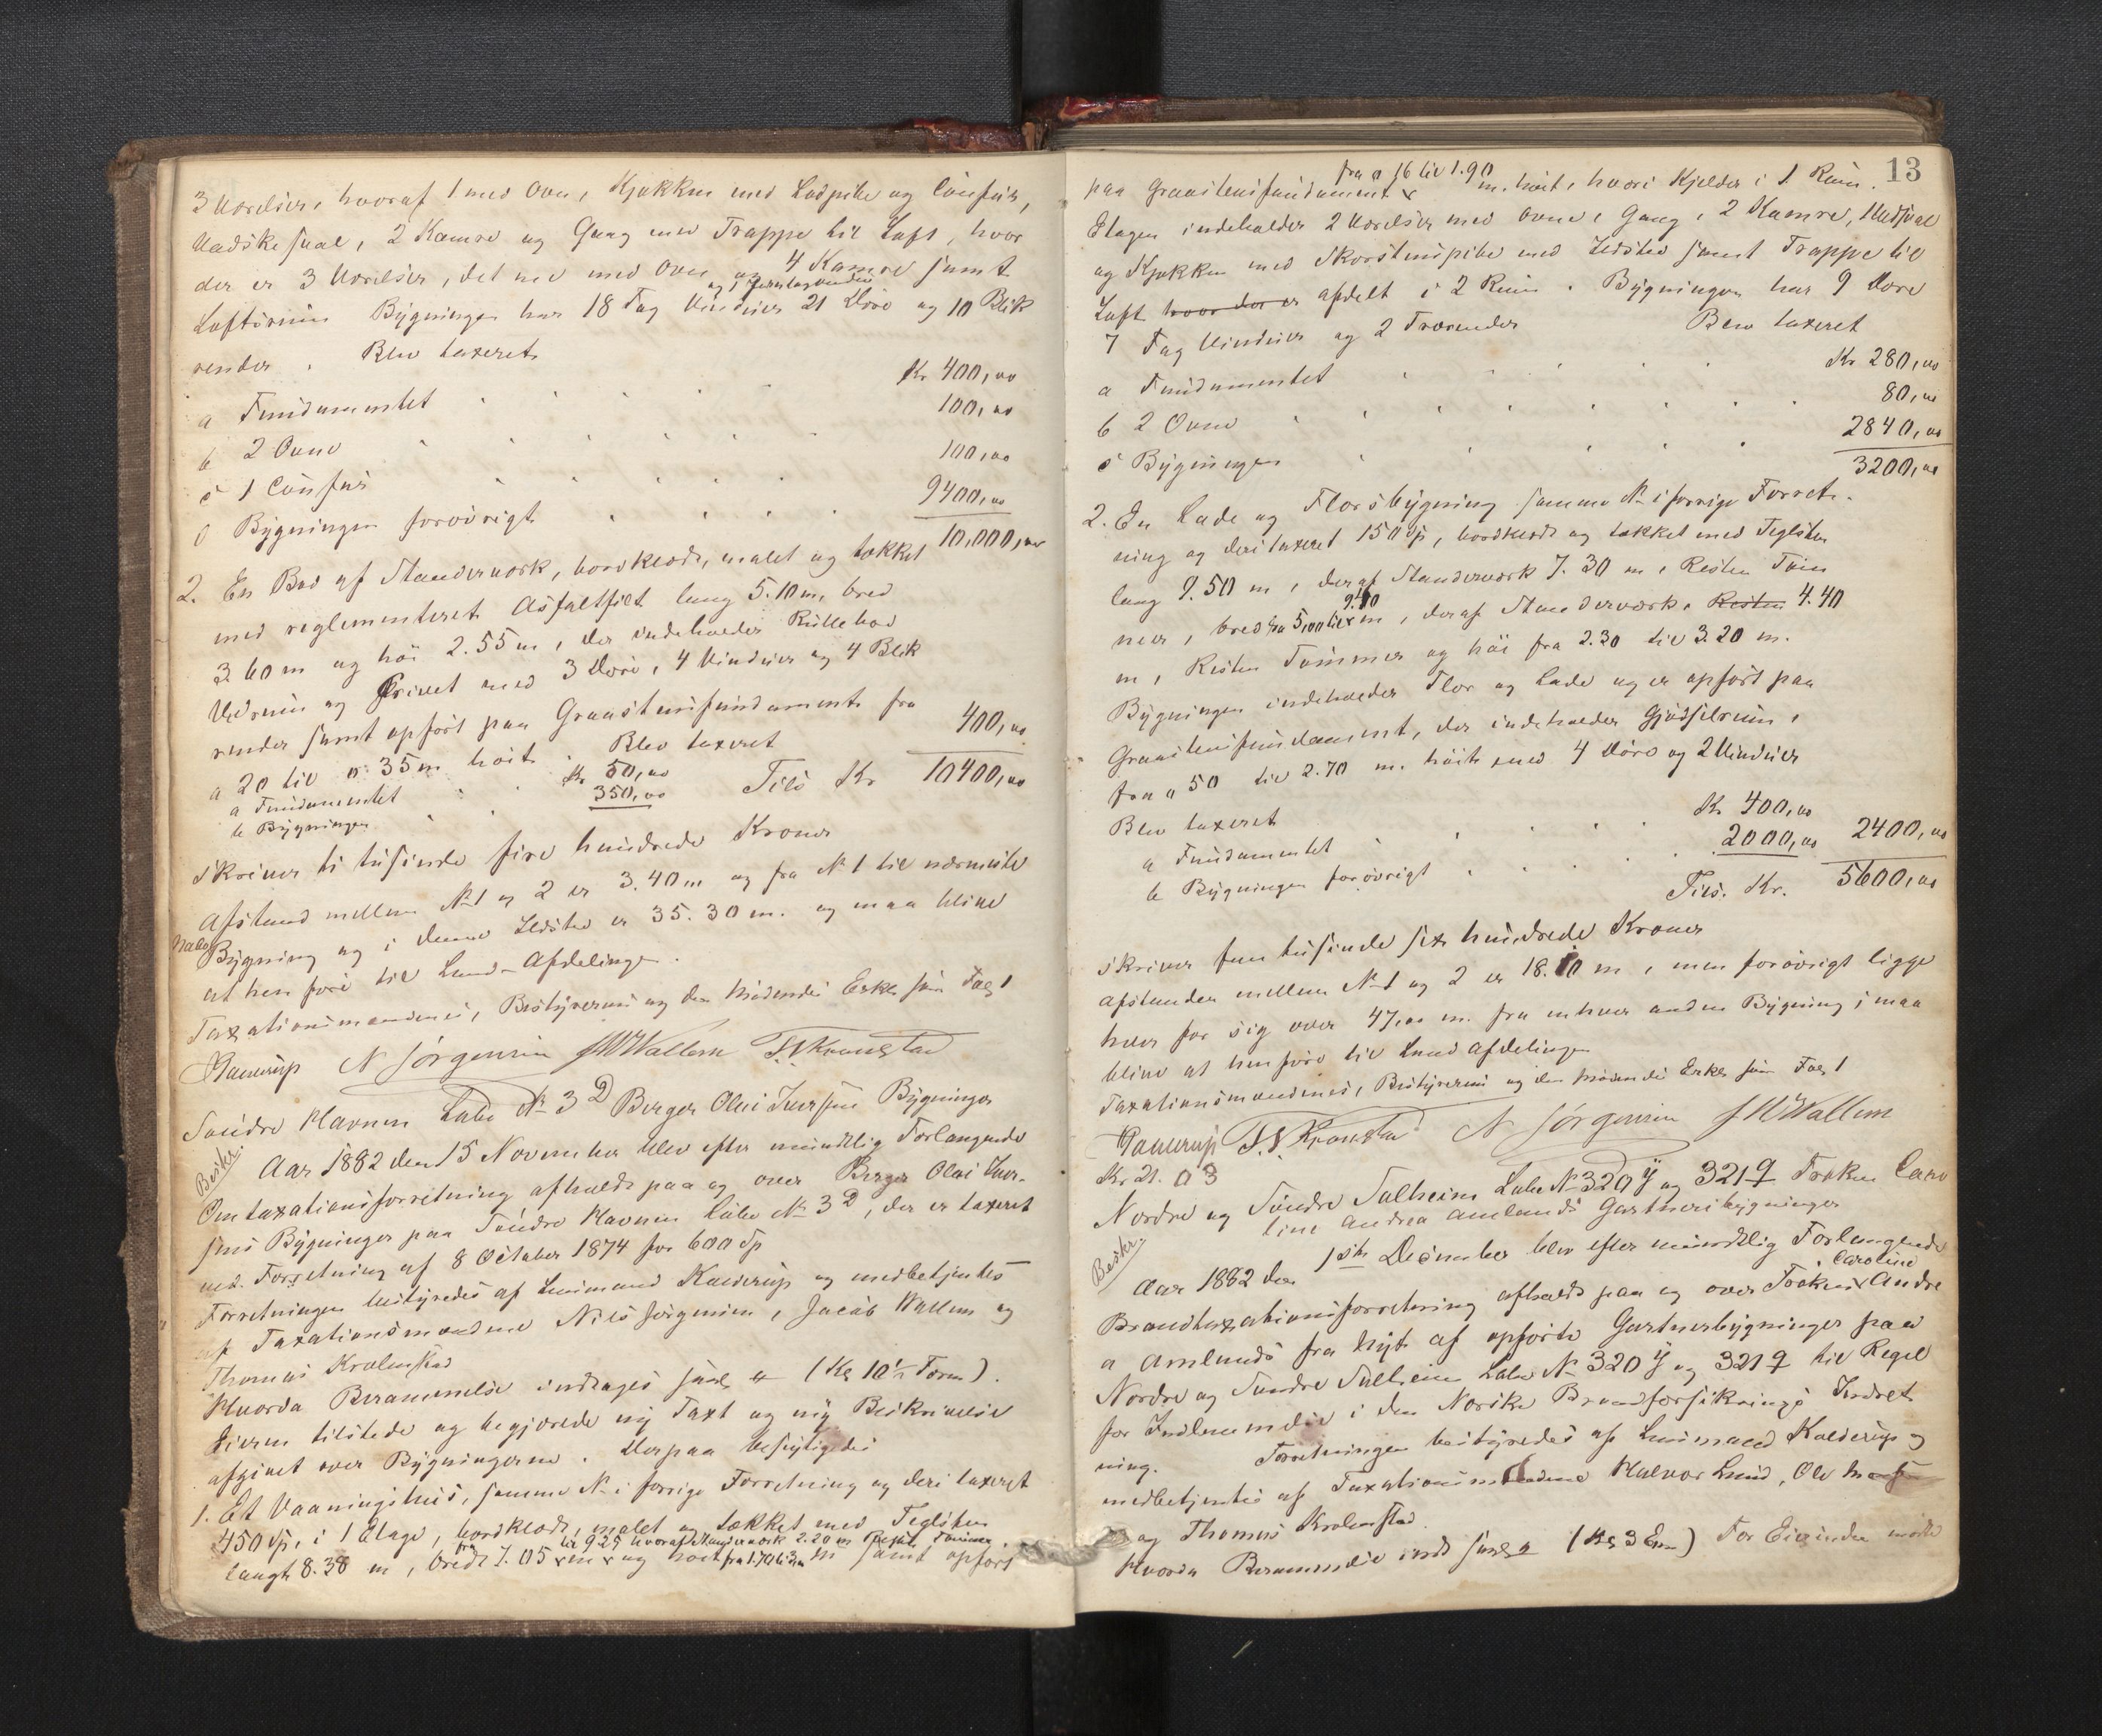 3 Værelser, hvoraf 1 med Ovn, Kjøkken med Ladpibe og Comfur,
Vadskesval, 2 Kamre og Gang med Trappe til Loft, hvor
der er 3 Værelser, det ene med Ovn og 4 Kamre samt
og 1
Loftsrum Bygningen har 18 Fag Vinduer 21 Døre og 10 Blik
render. Blev taxeret
a Fundamentet Kr 400,00
b 2 Ovne 100,00
c 1 Comfur 100,00
d Bygningen forøvrigt 9400,00
10,000,00
2. En Bod af Standerværk, bordklædt, malet og tækket
med reglementeret Asfaltfilt lang 5.10 m, bred
3.60 m og høi 2.55 m, der indeholder Rullebod
Vedrum og Privet med 3 Døre, 4 Vinduer og 4 Blik
render samt opført paa Graastensfundament fra
0.20 til 0.35 m høit. Blev taxeret 400,00
a Fundamentet Kr 50,00
b Bygningen 350,00 Tils Kr 10400,00
skriver ti tusinde fire hundrede Kroner
Afstand mellem No 1 og 2 er 3.40 m og fra No 1 til nærmeste
Nabo
Bygning og i denne Ildsted er 35.30 m. og maa blive
at henføre til Land-Afdelingen.
Taxationsmændenes, Bestyrerens og den mødendes Eskp som Fol 1
Kaurup N Jørgensen J W Wallem T. S Kronstad
Søndre Havnen Løbe No 3 D Berger Olai Iversens Bygninger
Beskr.
Aar 1882 den 15 November blev efter mundtlig Forlangende
Omtaxationsforretning afholdt paa og over Berger Olai Iver-
sens Bygninger paa Søndre Havnen Løbe No 3 D, der er taxeret
ved Forretning af 8 October 1874 for 600 Sp
Forretningen bestyredes af Lensmand Kalderup og medbetjentes
af Taxationsmændene Nils Jørgensen, Jacob Wallem og
Thomas Kralmstad
Hvorda Berammelse indtages (Kl 10½ Form).
Eieren tilstede og begjærede ny Taxt og ny Beskrivelse
afgivet over Bygningerne. Derpaa besigtigedes
1. Et Vaaningshus, samme No i forrige Forretning og deri taxeret
450 Sp, i 1 Etage, bordklædt, malet og tækket med Teglsten
fra til 9.25 hvoraf Standerværk 2.20 m Resten Tømmer
langt 8.38 m, bredt 7.05 m og høit fra 1.70 til m samt opført
13
fra 0.16 til 1.90
paa Graastensfundament m. høit, hvori Kjelder i 1 Rum.
Etagen indeholder 2 Værelser med Ovne, Gang, 2 Kamre, Vadsval
og Kjøkken med Skorstenspibe med Ildsted samt Trappe til
Loft hvor der er afdelt i 2 Rum. Bygningen har 9 Døre
7 Fag Vinduer og 2 Trærender Blev taxeret
a Fundamentet Kr 280,00
b 2 Ovne 80,00
c Bygningen 2840,00
3200,00
2. En Lade og Florsbygning samme No i forrige Forret-
ning og deri taxeret 150 Sp, bordklædt og tækket med Teglsten
lang 9.50 m, deraf Standerværk 7.30 m, Resten Tøm
9.10
mer, bred fra 5,00 til m, deraf Standerværk Resten 4.40
m, Resten Tømmer og høi fra 2.30 til 3.20 m.
Bygningen indeholder Flor og Lade og er opført paa
Graastensfundament, der indeholder Gjødselrum,
fra 0.50 til 2.70 m. høit, med 4 Døre og 2 Vinduer
Blev taxeret
a Fundamentet Kr 400,00
b Bygningen forøvrigt 2000,00 2400,00
Tils. Kr. 5600,00
skriver fem tusinde sex hundrede Kroner
Afstanden mellem No 1 og 2 er 18.10 m, men forøvrigt ligge
hver for sig over 47,00 m. fra enhver anden Bygning, maa
blive at henføre til Landafdelingen
Taxationsmændenes, Bestyrerens og den mødendes Eskp som Fol 1
Kaurup T. S. Kronstad N Jørgensen J W Wallem
Kr 21.03
Nordre og Søndre Solheim Løbe No 320 y og 321 q Frøken Caro
line Andrea Amlands Gartneribygninger
Beskr.
Aar 1882 den 1ste December blev efter mundtlig Forlangende
Caroline
Brandtaxationsforretning afholdt paa og over Frøken Andre
a Amlands fra Nyt af opførte Gartnerbygninger paa
Nordre og Søndre Solheim Løbe No 320 y og 321 q til Regel
for Indlemmelse i den Norske Brandforsikrings Indret
ning. Forretningen bestyredes af Lensmand Kalderup og
medbetjentes af Taxationsmændene Halvor Lund, Ole
og Thomas Kralmstad
Hvorda Berammelse (Kl 3 Em) For Eierinden mødte